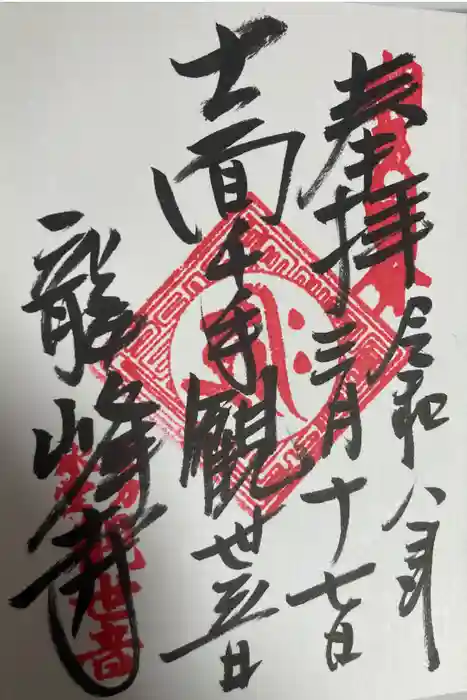 奉拝
令和八年
三月十七日
十一面千手觀世音
龍峰寺
観世音